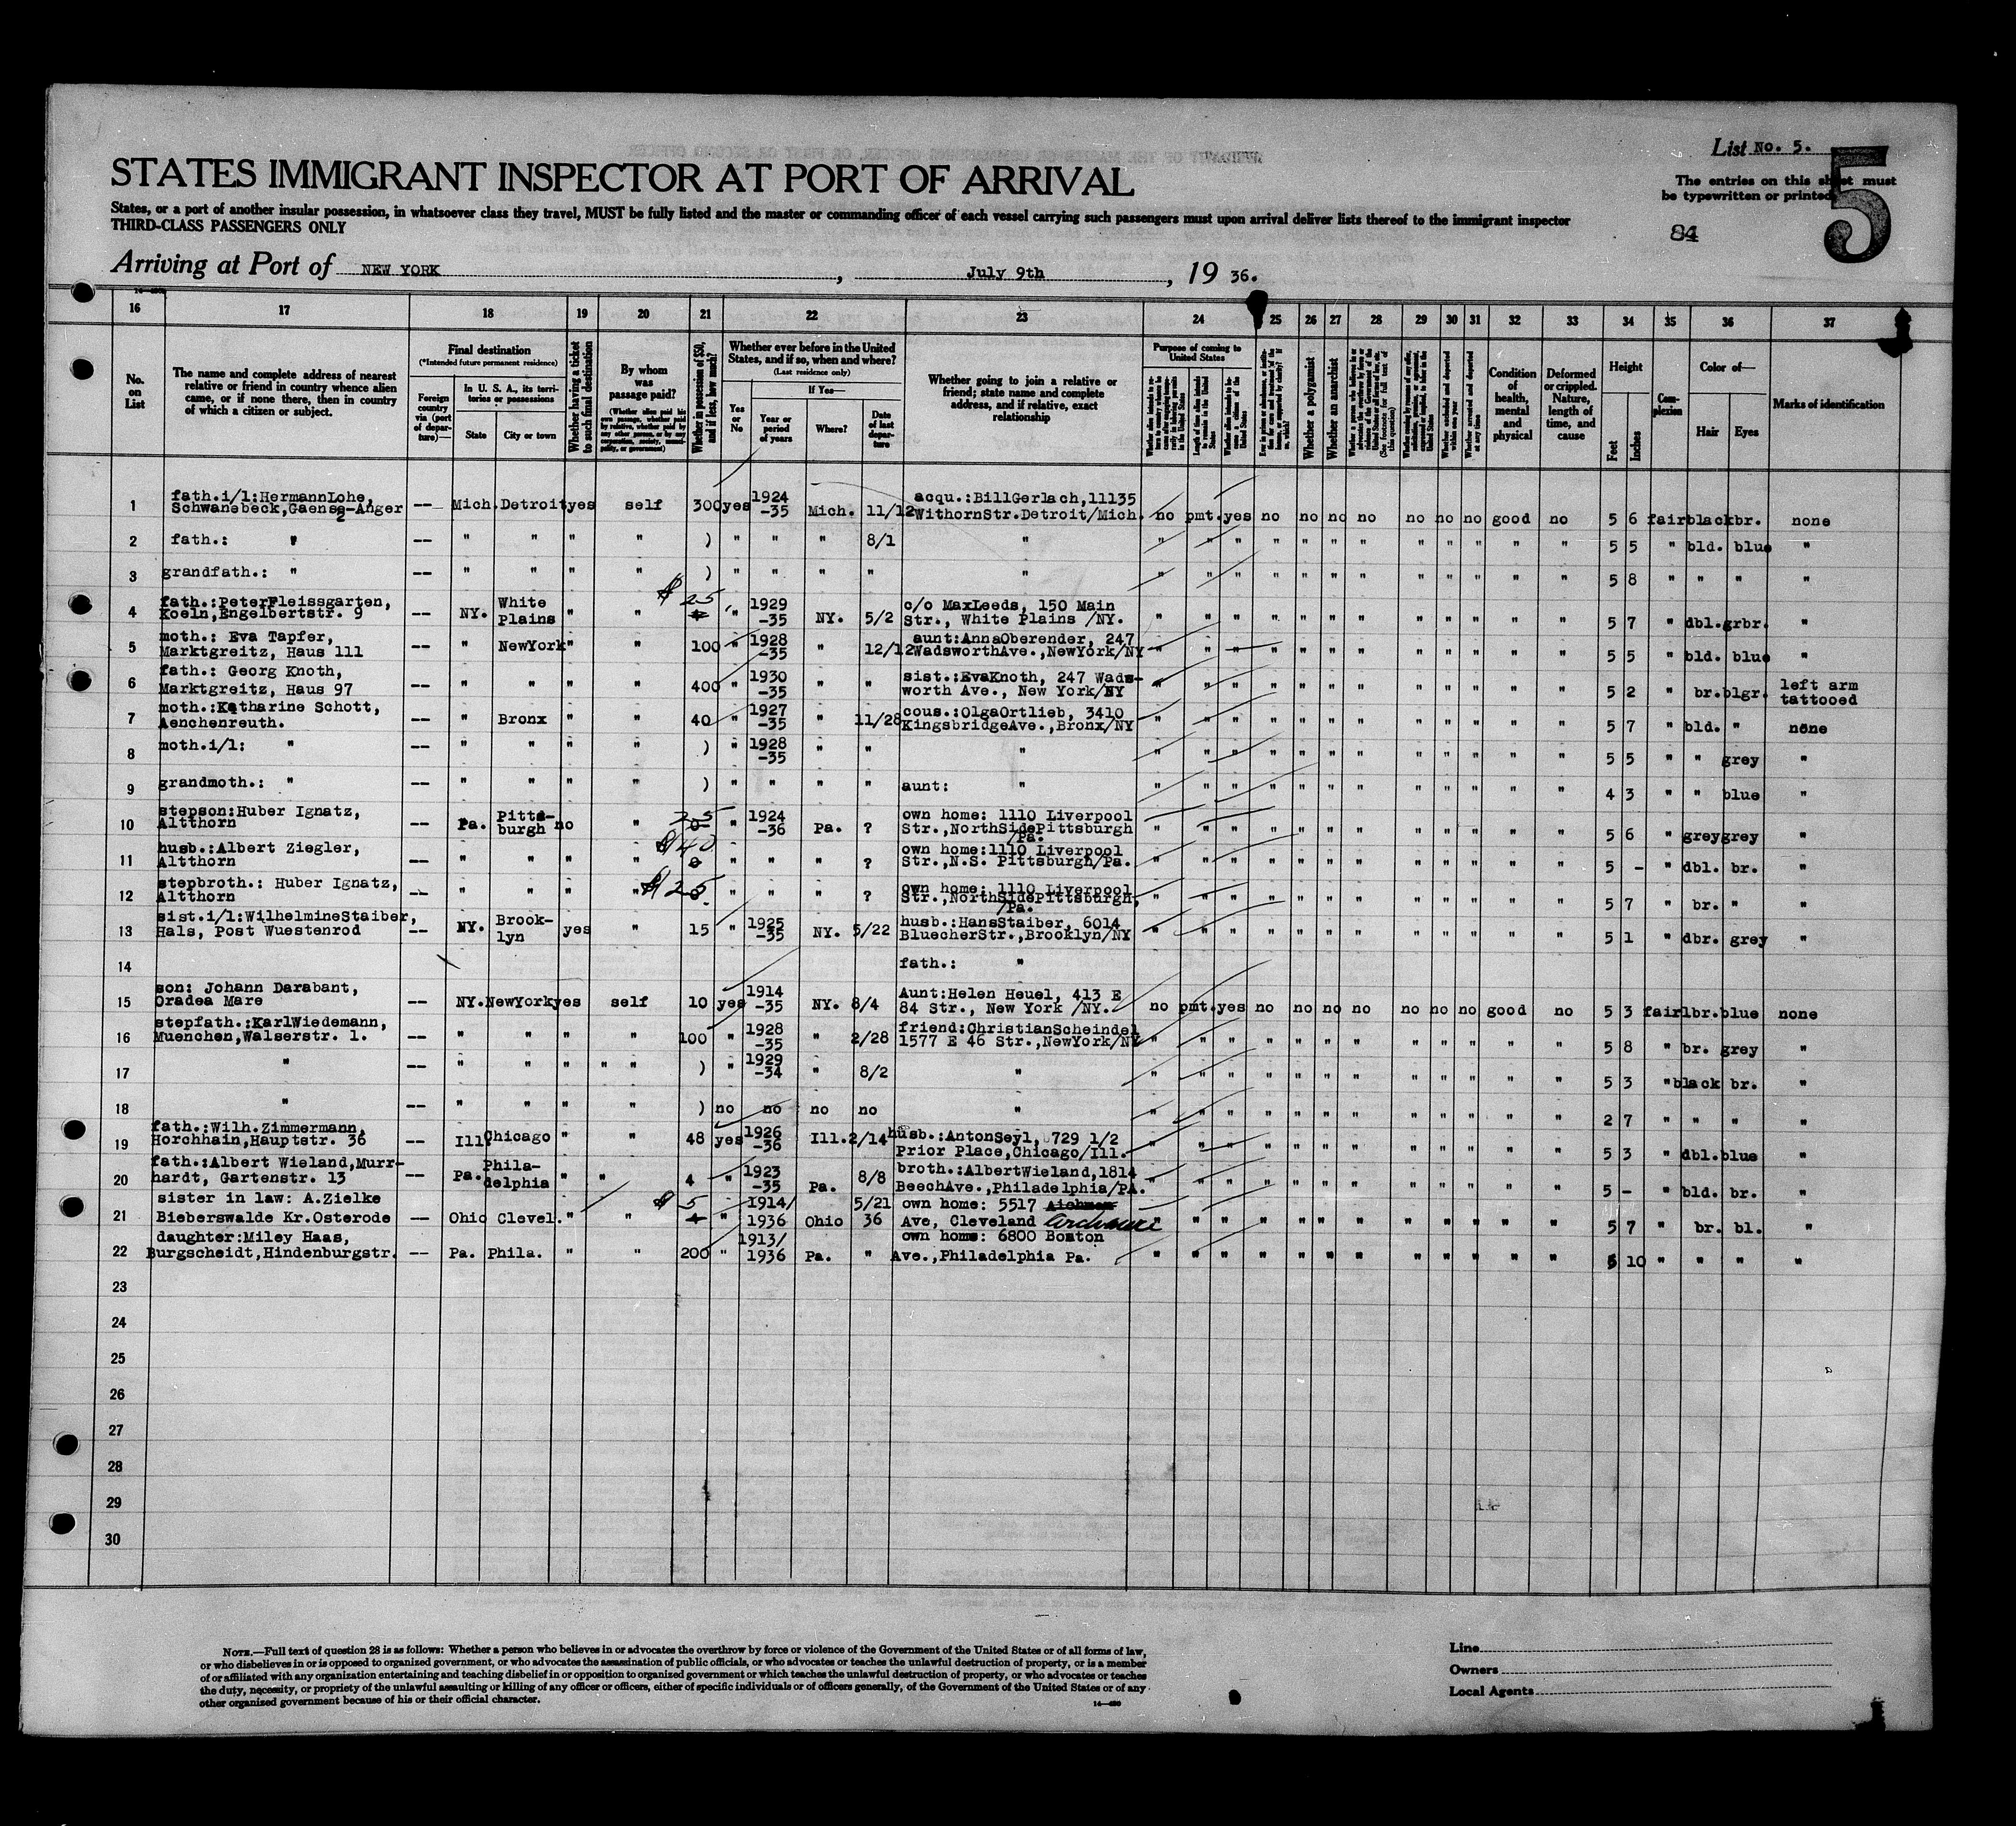 List No. 5.
5
STATES IMMIGRANT INSPECTOR AT PORT OF ARRIVAL
The entries on this sheet must
be typewritten or printed
States, or a port of another insular possession, in whatsoever class they travel, MUST be fully listed and the master or commanding officer of each vessel carrying such passengers must upon arrival deliver lists thereof to the immigrant inspector
THIRD-CLASS PASSENGERS ONLY
84
Arriving at Port of NEW YORK, July 9th, 19 36.
16 17 18 19 20 21 22 23 24 25 26 27 28 29 30 31 32 33 34 35 36 37
No. on List
The name and complete address of nearest relative or friend in country whence alien came, or if none there, then in country of which a citizen or subject.
Final destination
(*Intended future permanent residence)
Foreign country via (port of departure)—
In U. S. A., its territories or possessions
State
City or town
Whether having a ticket to such final destination
By whom was passage paid?
(Whether alien paid his own passage, whether paid by relative, whether paid by any other person, or by any corporation, society, municipality, or government)
Whether in possession of $50, and if less, how much?
Whether ever before in the United States, and if so, when and where?
(Last residence only)
Yes or No
If Yes—
Year or period of years
Where?
Date of last departure
Whether going to join a relative or friend; state name and complete address, and if relative, exact relationship
Purpose of coming to United States
Length of time alien intends to remain in the United States
Whether a polygamist
Whether an anarchist
(See footnote for full text of this question)
Whether arrested and deported at any time
Condition of health, mental and physical
Deformed or crippled. Nature, length of time, and cause
Height
Feet
Inches
Complexion
Color of—
Hair
Eyes
Marks of identification
1 fath.i/l:HermannLohe, Schwanebeck,Gaense-Anger 2 -- Mich. Detroit yes self 300 yes 1924 -35 Mich. 11/12 acqu.:BillGerlach,11135 WithornStr.Detroit/Mich. no pmt. yes no no no no no no no good no 5 6 fair black br. none
2 fath.: " -- " " " " ) " " " 8/1 " " " " " " " " " " " " " 5 5 " bld. blue "
3 grandfath.: " -- " " " " ) " " " " " " " " " " " " " " " " " 5 8 " " " "
4 fath.:PeterFleissgarten, Koeln,Engelbertstr. 9 -- NY. White Plains " " $25 " 1929 -35 NY. 5/2 c/o MaxLeeds, 150 Main Str., White Plains /NY. " " " " " " " " " " " " 5 7 " dbl. grbr. "
5 moth.: Eva Tapfer, Marktgreitz, Haus 111 -- " NewYork " " 100 " 1928 -35 " 12/12 aunt:AnnaOberender, 247 WadsworthAve.,NewYork/NY " " " " " " " " " " " " 5 5 " bld. blue "
6 fath.: Georg Knoth, Marktgreitz, Haus 97 -- " " " " 400 " 1930 -35 " " sist.:EvaKnoth, 247 Wads- worth Ave., New York/NY " " " " " " " " " " " " 5 2 " br. blgr. left arm tattooed
7 moth.:Katharine Schott, Aenchenreuth. -- " Bronx " " 40 " 1927 -35 " 11/28 cous.:OlgaOrtlieb, 3410 KingsbridgeAve.,Bronx/NY " " " " " " " " " " " " 5 7 " bld. " none
8 moth.i/l: " -- " " " " ) " 1928 -35 " " " " " " " " " " " " " " " 5 5 " " grey "
9 grandmoth.: " -- " " " " ) " " " " aunt: " " " " " " " " " " " " " 4 3 " " blue "
10 stepson:Huber Ignatz, Altthorn -- Pa. Pitts- burgh no " " 1924 -36 Pa. ? own home: 1110 Liverpool Str.,NorthSidePittsburgh /Pa. " " " " " " " " " " " " 5 6 " grey grey "
11 husb.:Albert Ziegler, Altthorn -- " " " " $40 " " " ? own home:1110 Liverpool Str.,N.S. Pittsburgh/Pa. " " " " " " " " " " " " 5 - " dbl. br. "
12 stepbroth.: Huber Ignatz, Altthorn -- " " " " $25 " " " ? own home: 1110 Liverpool Str.,NorthSidePittsburgh, /Pa. " " " " " " " " " " " " 5 7 " br. " "
13 sist.i/l:WilhelmineStaiber, Hals, Post Wuestenrod -- NY. Brook- lyn yes " 15 " 1925 -35 NY. 5/22 husb.:HansStaiber, 6014 BluecherStr.,Brooklyn/NY " " " " " " " " " " " " 5 1 " dbr. grey "
14 fath.: "
15 son: Johann Darabant, Oradea Mare -- NY. NewYork yes self 10 yes 1914 -35 NY. 8/4 Aunt:Helen Heuel, 413 E 84 Str., New York /NY. no pmt. yes no no no no no no no good no 5 3 fair lbr. blue none
16 stepfath.:KarlWiedemann, Muenchen,Walserstr. 1. -- " " " " 100 " 1928 -35 " 2/28 friend:ChristianScheindel 1577 E 46 Str.,NewYork/NY " " " " " " " " " " " " 5 8 " br. grey "
17 " -- " " " " " ) " 1929 -34 " 8/2 " " " " " " " " " " " " " 5 3 " black br. "
18 " -- " " " " ) no no no no " " " " " " " " " " " " " 2 7 " " " "
19 fath.:Wilh.Zimmermann, Horchhain,Hauptstr. 36 -- Ill. Chicago " " 48 yes 1926 -36 Ill. 2/14 husb.:AntonSeyl, 729 1/2 Prior Place,Chicago/Ill. " " " " " " " " " " " " 5 3 " dbl. blue "
20 fath.:Albert Wieland,Murr- hardt, Gartenstr. 13 -- Pa. Phila- delphia " " 4 " 1923 -35 Pa. 8/8 broth.:AlbertWieland,1814 BeechAve.,Philadelphia/PA. " " " " " " " " " " " " 5 - " bld. br. "
21 sister in law: A.Zielke Bieberswalde Kr.Osterode -- Ohio Clevel. " " $5 " 1914/ 1936 Ohio 5/21 36 own home: 5517 Ave, Cleveland " " " " " " " " " " " " 5 7 " br. bl. "
22 daughter:Miley Haas, Burgscheidt,Hindenburgstr. -- Pa. Phila. " " 200 " 1913/ 1936 Pa. " own home: 6800 Boston Ave.,Philadelphia Pa. " " " " " " " " " " " " 5 10 " " " "
23
24
25
26
27
28
29
30
NOTE.—Full text of question 28 is as follows: Whether a person who believes in or advocates the overthrow by force or violence of the Government of the United States or of all forms of law,
or who disbelieves in or is opposed to organized government, or who advocates the assassination of public officials, or who advocates or teaches the unlawful destruction of property, or is a member
of or affiliated with any organization entertaining and teaching disbelief in or opposition to organized government or which teaches the unlawful destruction of property, or who advocates or teaches
the duty, necessity, or propriety of the unlawful assaulting or killing of any officer or officers, either of specific individuals or of officers generally, of the Government of the United States or of any
other organized government because of his or their official character.
Line
Owners
Local Agents